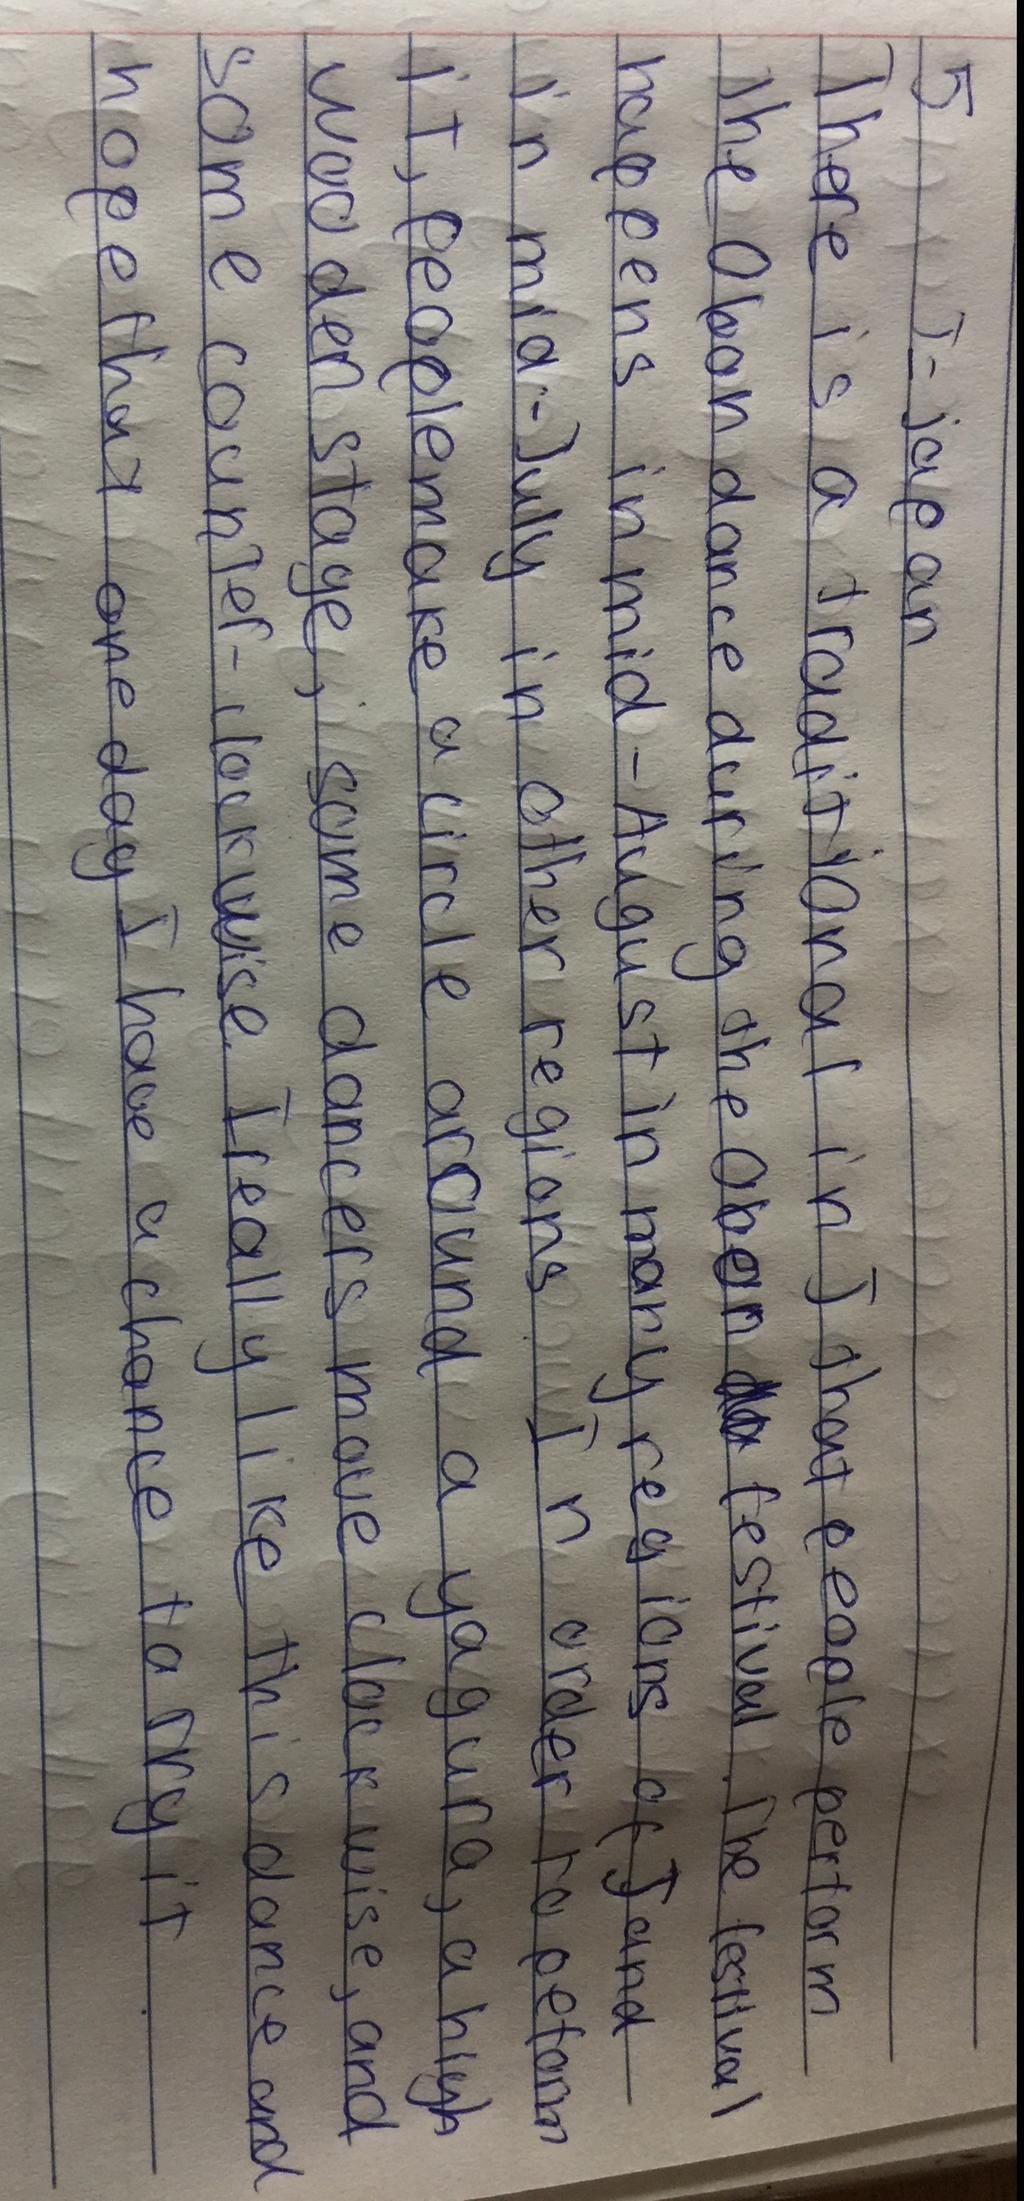 5 J-japan
There is a traditional in J that people perform
the Oban dance during the Oban festival. The festival
happens in mid-August in many regions of J and
in mid-July in other regions. In order to peform
it, people make a circle around a yagura, a high
wooden stage, some dancers move clockwise, and
some counter-clockwise. I really like this dance and
hope that one day I have a chance to try it.